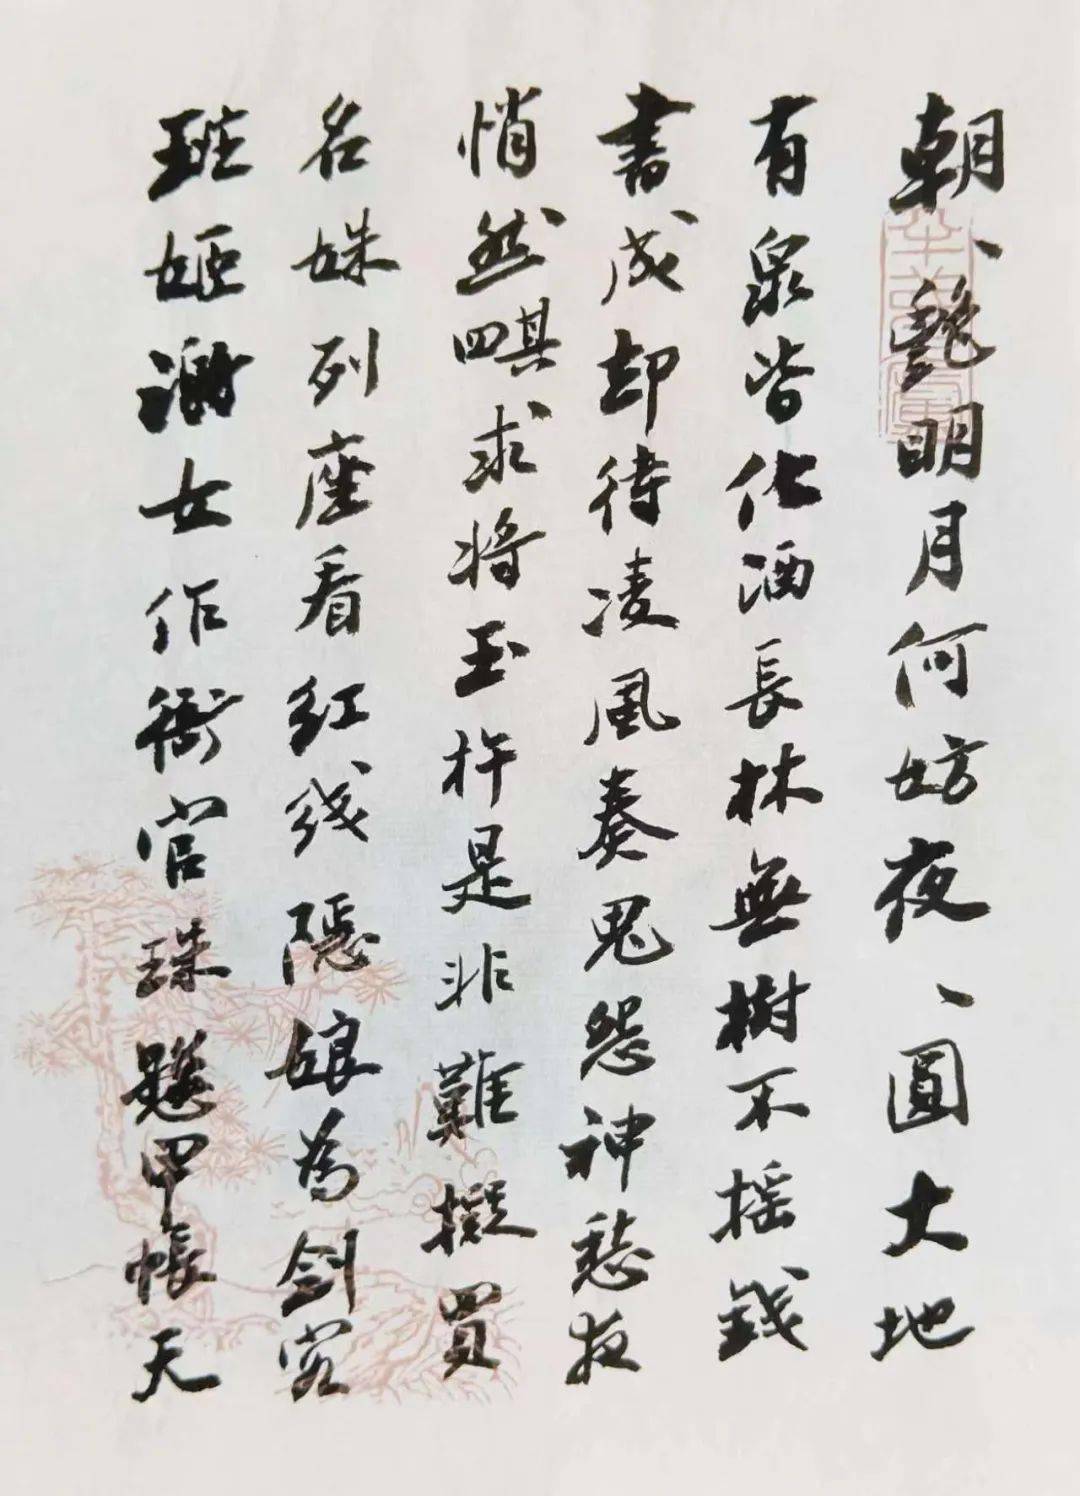 朝、艷明月何妨夜、圓大地
有泉皆化酒長林無樹不摇錢
書成却待凌風奏鬼怨神愁夜
悄然求將玉杵是非難擬買
名姝列座看紅线隱娘為劍客
班姬謝女作衙官珠懸甲帳天